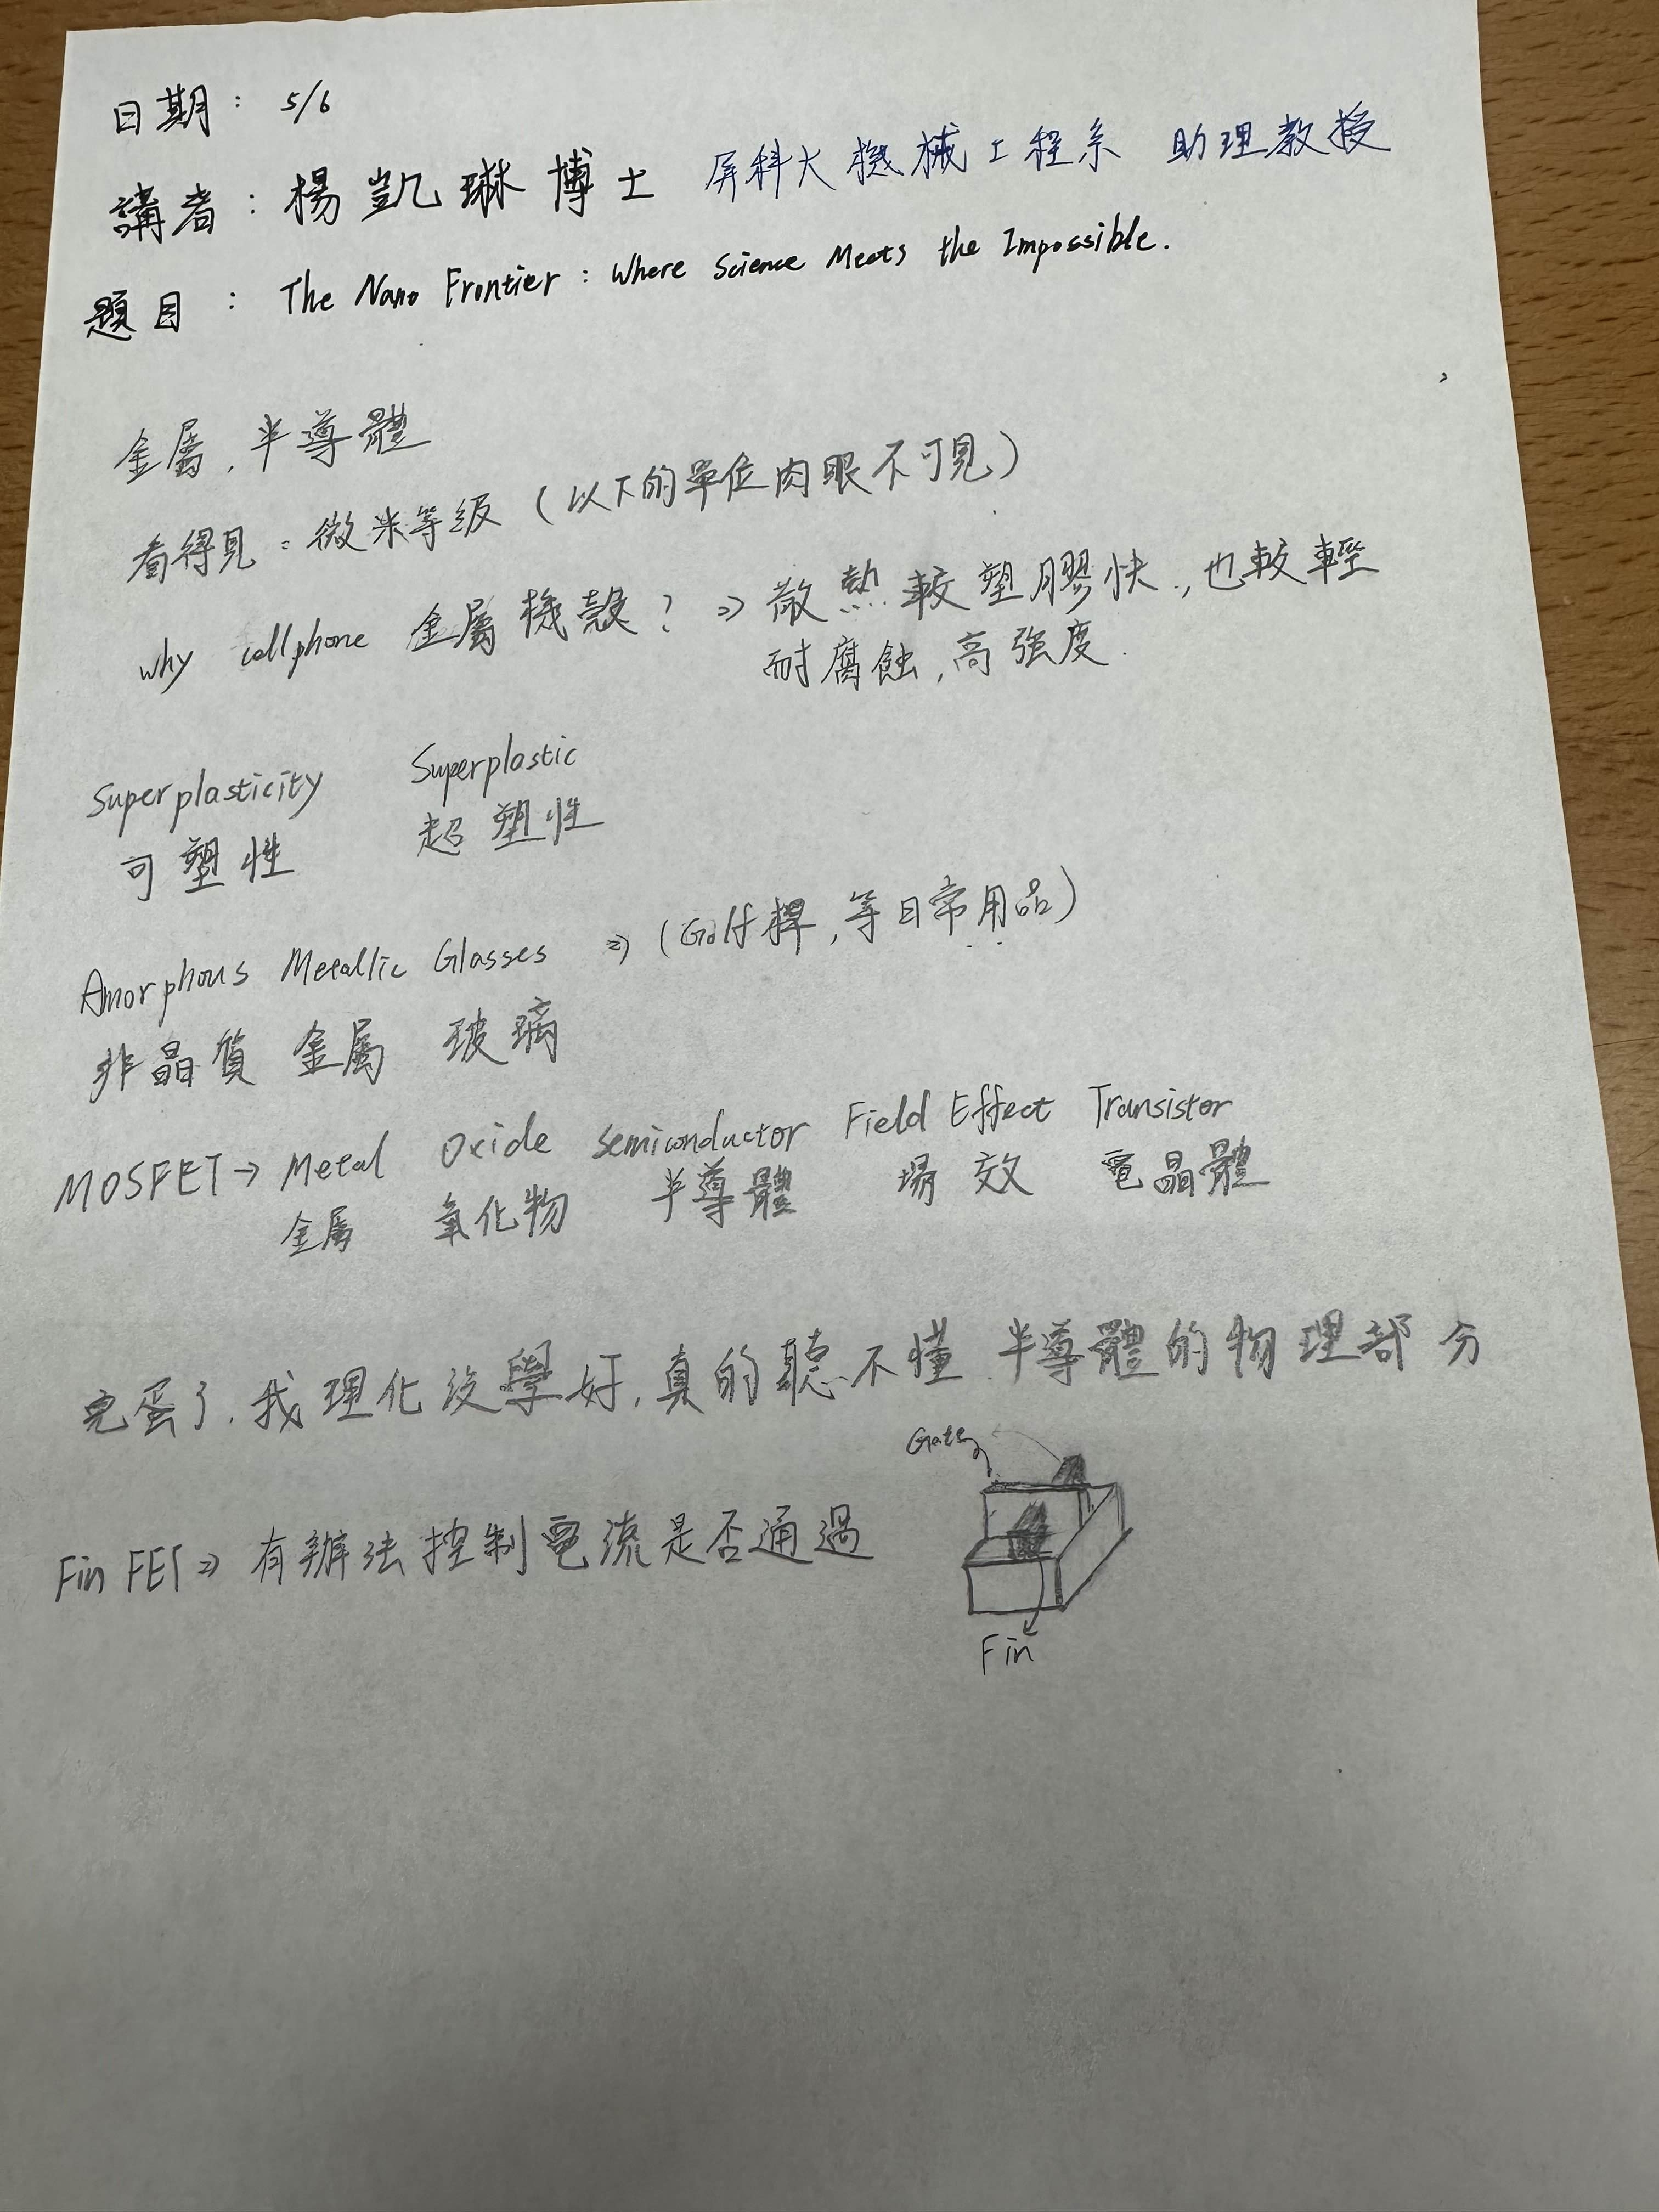 日期： 5/6
講者：楊凱琳博士 屏科大機械工程系 助理教授
題目： The Nano Frontier : Where Science Meets the Impossible.
金屬，半導體
看得見：微米等級（以下的單位肉眼不可見）
why cellphone 金屬機殼？⇒ 散熱較塑膠快，也較輕
耐腐蝕，高強度.
Superplasticity Superplastic
可塑性 超塑性
Amorphous Metallic Glasses ⇒ (Golf桿，等日常用品)
非晶質 金屬 玻璃
MOSFET → Metal Oxide Semiconductor Field Effect Transistor
金属 氧化物 半導體 場效 電晶體
完蛋了，我理化沒學好，真的聽不懂半導體的物理部分
Gate
Fin FET ⇒ 有辦法控制電流是否通過
Fin